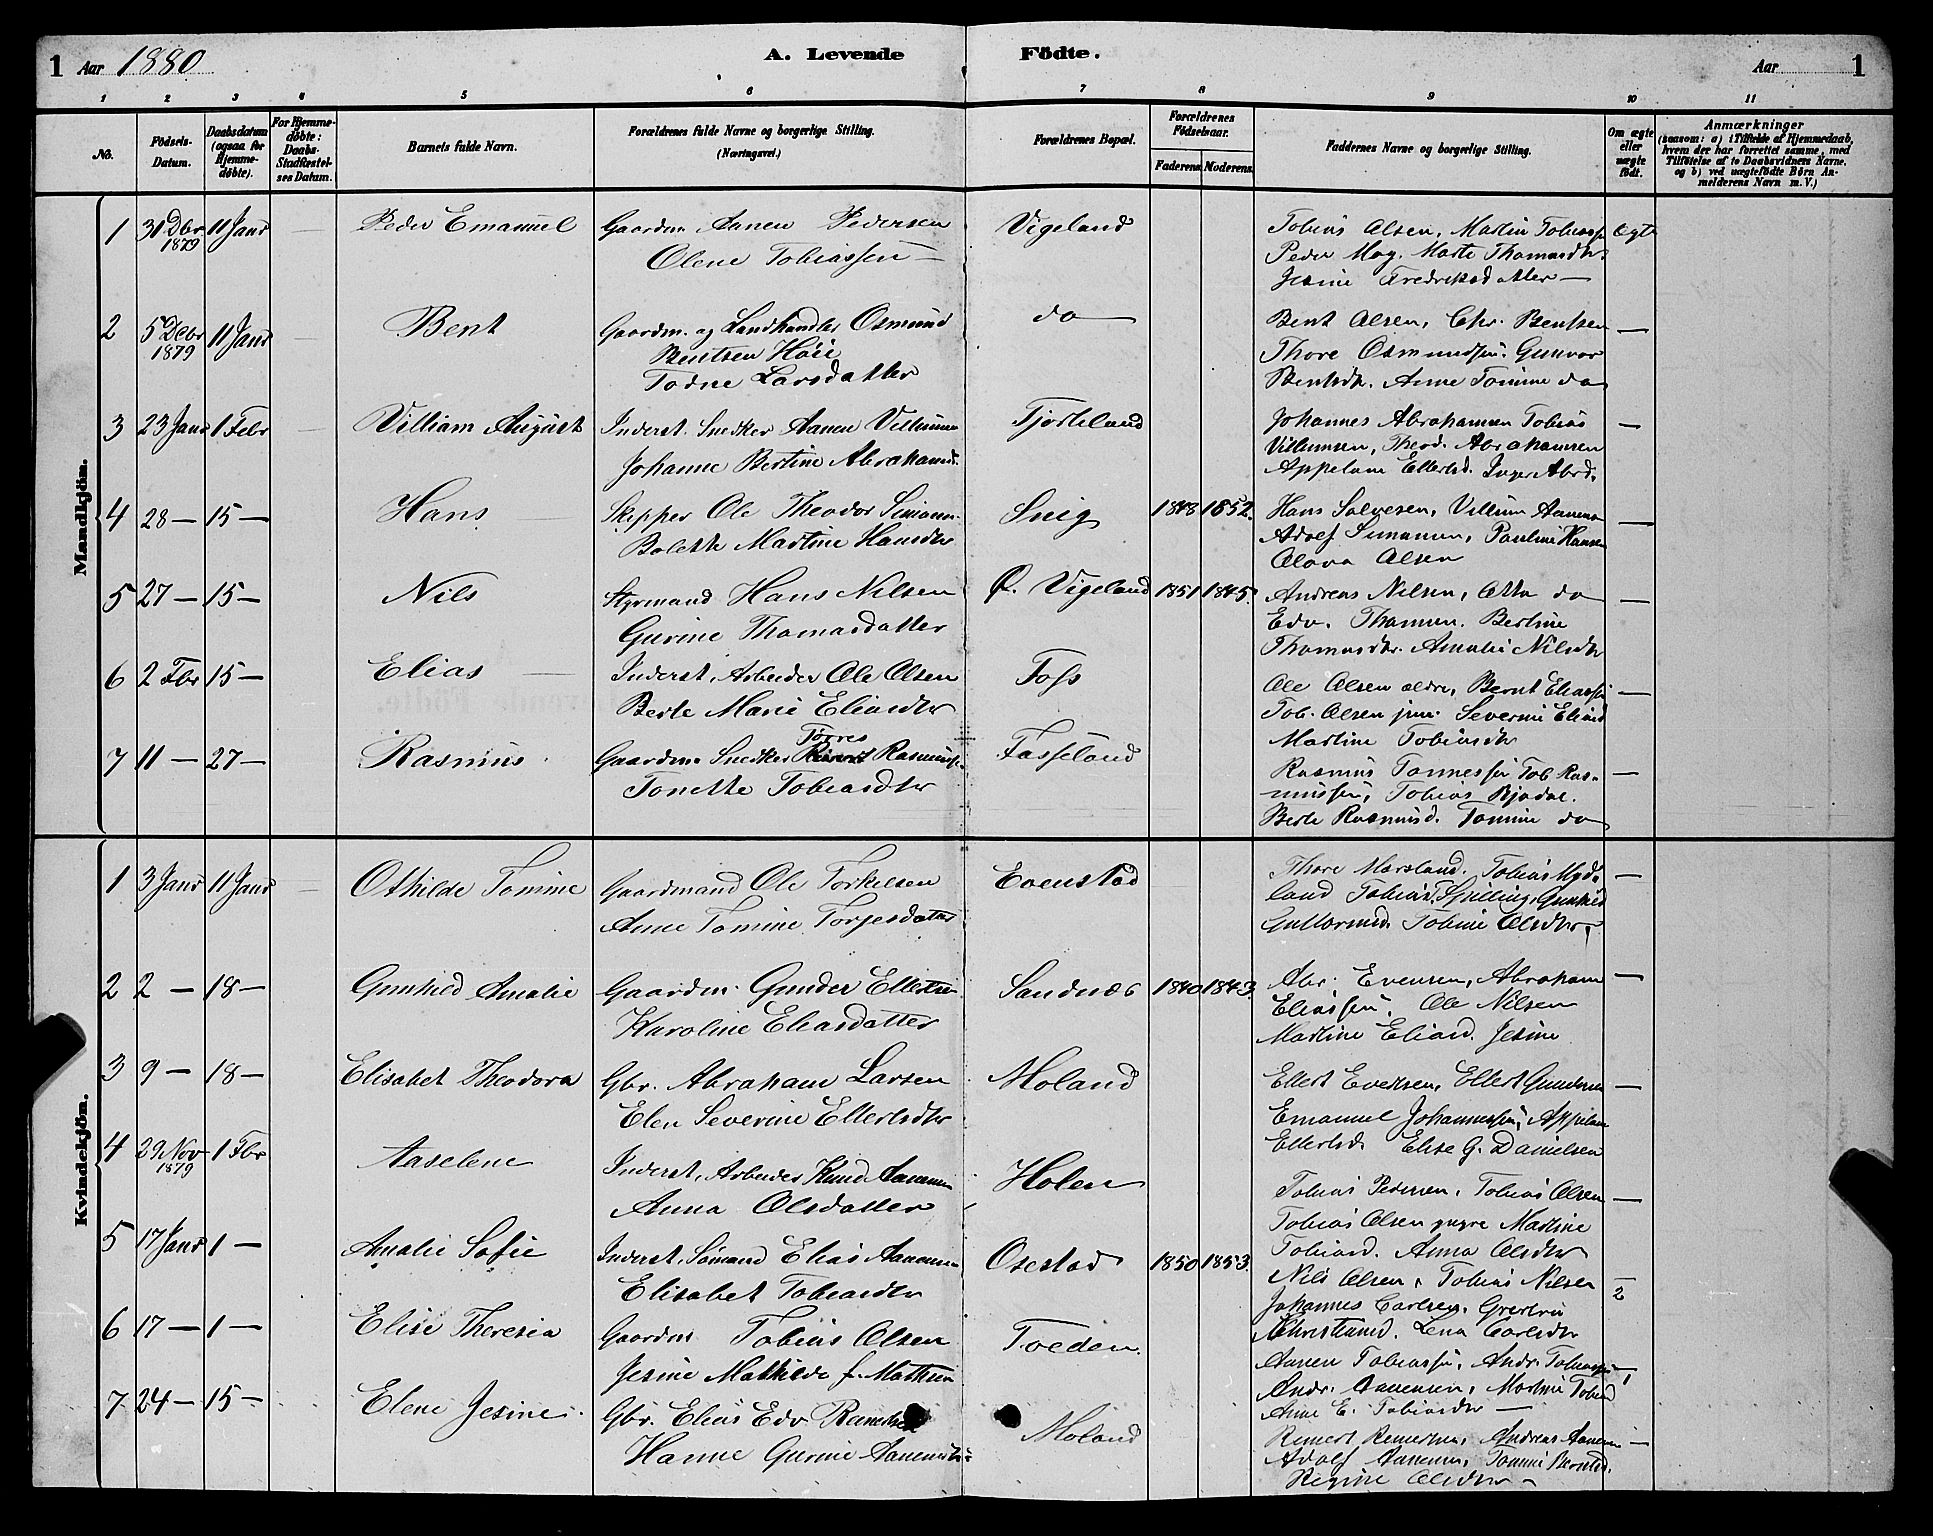 1 Aar 1880 A. Levende Födte. Aar 1
1 2 3 4 5 6 7 8 9 10 11
No.
Födsels-
Datum.
Daabsdatum
(ogsaa for
Hjemme-
döbte).
For Hjemme-
döbte:
Daabs-
Stadfæstel-
ses Datum.
Barnets fulde Navn.
Forældrenes fulde Navne og borgerlige Stilling.
(Næringsvei.)
Forældrenes Bopæl.
Forældrenes
Födselsaar.
Faderens. Moderens.
Faddernes Navne og borgerlige Stilling.
Om ægte
eller
uægte
födt.
Anmærkninger
(saasom: a) i Tilfælde af Hjemmedaab,
hvem der har forrettet samme, med
Tilföielse af to Daabsvidners Navne.
og b) ved uægtefödte Börn An-
melderens Navn m. V.)
Mandkjön.
1 31 Dbr 1879 11 Janr — Peder Emanuel
Gaardm Aanen Pedersen
Olene Tobiassen —
Vigeland
Tobias Olsen, Martin Tobiass
Peder Mag. Marte Thomasdtr.
Jesine Fredriksdatter —
ægte
2 5 Debr 1879 11 Janr — Bent
Gaardm. og Landhandler Osmund
Bentsen Høie
Todne Larsdatter
do —
Bent Olsen, Chr. Bentsen
Thore Osmundsen. Gunvor
Bentsdtr. Anne Tomine do
—
3 23 Janr 1 Febr — Villiam August
Inderst. Snedker Aanen Villumsen
Johanne Bertine Abrahamsd.
Fjorteland
Johannes Abrahamsen Tobias
Villumsen, Theod. Abrahamsen
Appelone Ellertsd. Inger Abrd.
—
4 28 — 15 — Hans
Skipper Ole Theodor Simonn.
Bolette Martine Hansdtr
Snig
1848 1852.
Hans Salvesen, Villum Aanens
Adolf Simonsen, Pauline Hansen
Olava Olsen
—
5 27 — 15 — Nils
Styrmand Hans Nilsen
Gurine Thomasdatter
Ø. Vigeland
1851 1845.
Andreas Nilsen, Otto do
Edv. Thomsen. Bertine
Thomasdtr. Amalie Nilsdtr
—
6 2 Fbr 15 — Elias —
Inderst, Arbeider Ole Olsen
Berte Marie Eliasdtr
Foss
Ole Olsen ældre, Bernt Eliassen
Tob. Olsen jun. Severine Eliasd
Martine Tobiasdtr
—
7 11 — 27 — Rasmus
Torres
Gaardm. Snedker Rasmuss.
Tonette Tobiasdtr
Fasseland
Rasmus Tonnessen Tob Ras-
mussen, Tobias Bjødal.
Berte Rasmusd. Tomine do
—
Kvindekjön.
1 3 Janr 11 Janr — Othilde Tomine
Gaardmand Ole Torkelsen
Anne Tomine Torgesdatter
Evenstad
Thore Morsland. Tobias Myd-
land Tobias T. Spilling, Gunhild
Guttormsd. Tobine Olsdtr.
—
2 2 — 18 — Gunhild Amalie
Gaardm. Gunder Ellertsen
Karoline Eliasdatter
Sandnes
1840 1843.
Abr. Evensen, Abraham
Eliassen, Ole Nilsen
Martine Eliasd. Jesine
—
3 9 — 18 — Elisabet Theodora
Gbr. Abraham Larsen
Elen Severine Ellertsdtr
Moland
Ellert Evertsen, Ellert Gundersen
Emanuel Johannessen, Appelone
Ellertsd. Elise G. Danielsen
—
4 29 Nov 1879 1 Fbr Aaselene
Inderst, Arbeider Knud Aanensen
Anna Olsdatter
Holen
Tobias Pedersen, Tobias Olsen
Tobias Olsen yngre Martine
Tobiasd. Anna Olsdtr
—
5 17 Janr 1 — Amalie Sofie
Inderst, Sømand Elias Aanensen
Elisabet Tobiasdtr
Osestad
1850 1853.
Nils Olsen, Tobias Nilsen
Johannes Carlsen. Gretine
Christiansd. Lena Carlsdtr
— 2
6 17 — 1 — Elise Theresia
Gaardm Tobias Olsen
Jesine Mathilde f. Mathisen
Tveden.
Aanen Tobiassen, Andr. Tobiassen
Andr. Aanensen, Martine Tobiasd
Anne E. Tobiasdtr —
—
7 24 — 15 — Elene Jesine
Gbr. Elias Edv.
Hanne Gurine Aanensdtr
Moland
Reinert Reinertsen, Andreas Aanensen
Adolf Aanensen, Tomine Berntsd.
Regine Olsdtr
—